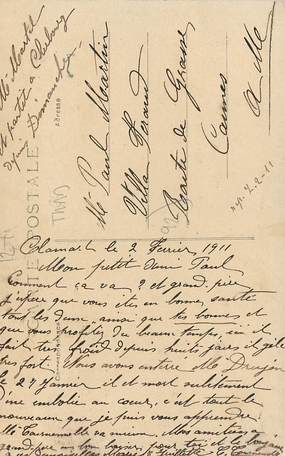 Mr Paul Martin
Villa Giraud
Route de Grasse
Cannes
A. M.
rep. 4-2-11
Mr Martel
est parti à
depuis Dimanche
POSTALE
adresse
Clamart le 2 Février 1911
Mon petit Ami Paul
Comment ça va ? et grand-père
j'espère que vous êtes en bonne santé
tout les deux ainsi que les bonnes et
que vous profitez du beau temps, ici il
fait très froid depuis huit jours il gèle
très fort. Nous avons enterré Mr
le 27 Janvier il est mort subitement
une embolie au cœur, c'est tout le
nouveau que je puis vous apprendre
Mr va mieux. Mes amitiés à
grand-père un bon baiser pour toi et le